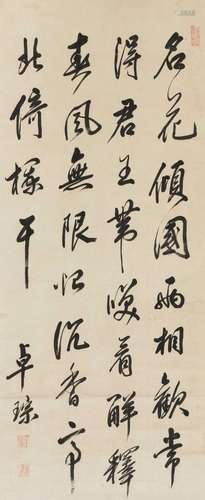 名花傾國兩相歡常
得君王帶咲看解釋
春風無限恨沉香亭
北倚欄干
卓琮